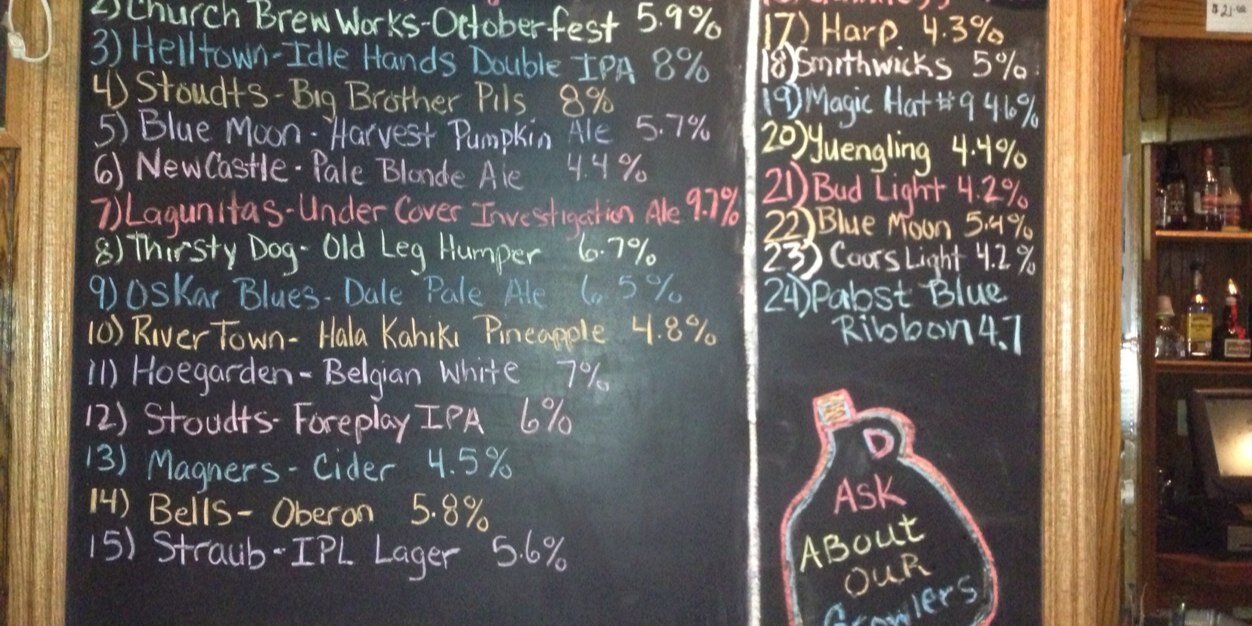 2) Church Brew Works-Octoberfest 5.9%
3) Helltown-Idle Hands Double IPA 8%
4) Stoudts-Big Brother Pils 8%
5) Blue Moon-Harvest Pumpkin Ale 5.7%
6) NewCastle-Pale Blonde Ale 4.4%
7) Lagunitas-Under Cover Investigation Ale 9.7%
8) Thirsty Dog-Old Leg Humper 6.7%
9) Oskar Blues-Dale Pale Ale 6.5%
10) River Town-Hala Kahiki Pineapple 4.8%
11) Hoegarden-Belgian White 7%
12) Stoudts-Foreplay IPA 6%
13) Magners-Cider 4.5%
14) Bells-Oberon 5.8%
15) Straub-IPL Lager 5.6%
17) Harp 4.3%
18) Smithwicks 5%
19) Magic Hat #9 4.6%
20) Yuengling 4.4%
21) Bud Light 4.2%
22) Blue Moon 5.4%
23) Coors Light 4.2%
24) Pabst Blue
Ribbon 4.7
D
Ask
About
Our
Growlers